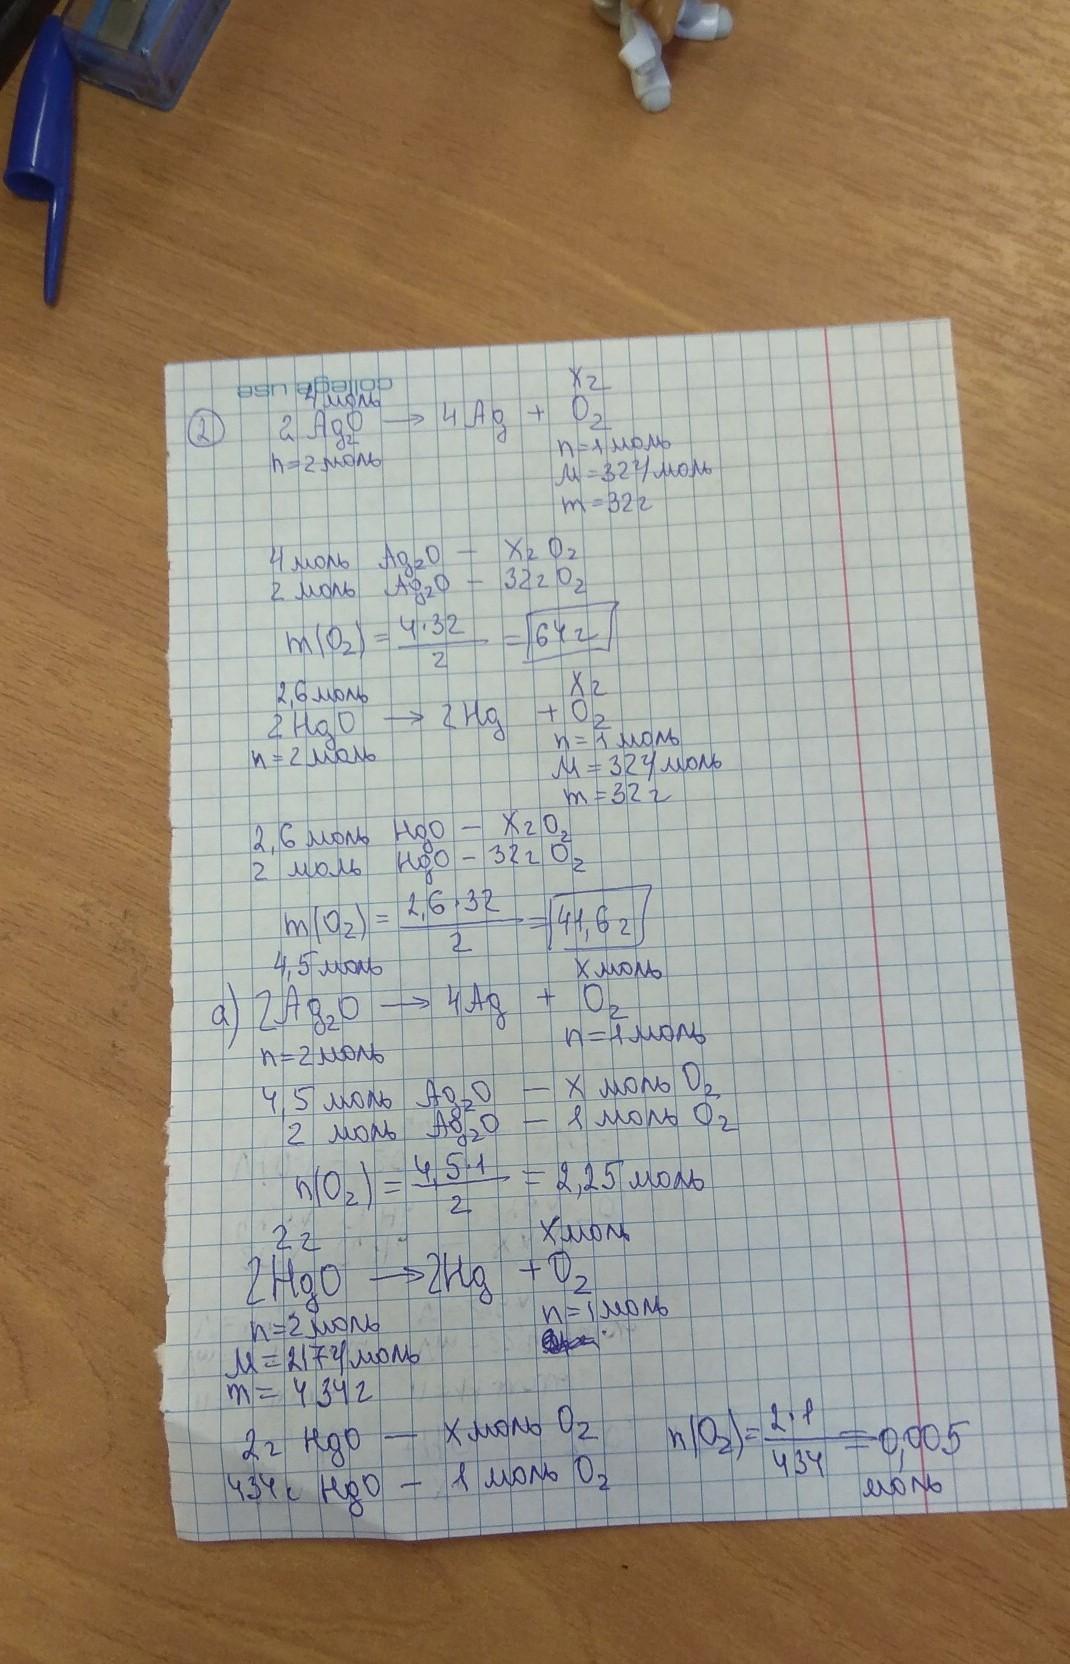 college use
4 моль
X г
② 2 Ag₂O → 4 Ag + O₂
n = 2 моль
n = 1 моль
M = 32 г/моль
m = 32 г
4 моль Ag₂O – X г O₂
2 моль Ag₂O – 32 г O₂
m(O₂) = 4·32 / 2 = 64 г
2,6 моль
X г
2HgO → 2Hg + O₂
n = 2 моль
n = 1 моль
M = 32 г/моль
m = 32 г
2,6 моль HgO – X г O₂
2 моль HgO – 32 г O₂
m(O₂) = 2,6·32 / 2 = 41,6 г
4,5 моль
X моль
а) 2Ag₂O → 4Ag + O₂
n = 2 моль
n = 1 моль
4,5 моль Ag₂O – X моль O₂
2 моль Ag₂O – 1 моль O₂
n(O₂) = 4,5·1 / 2 = 2,25 моль
2 г
X моль
2HgO → 2Hg + O₂
n = 2 моль
n = 1 моль
M = 217 г/моль
m = 434 г
2 г HgO – X моль O₂
434 г HgO – 1 моль O₂
n(O₂) = 2·1 / 434 = 0,005
моль